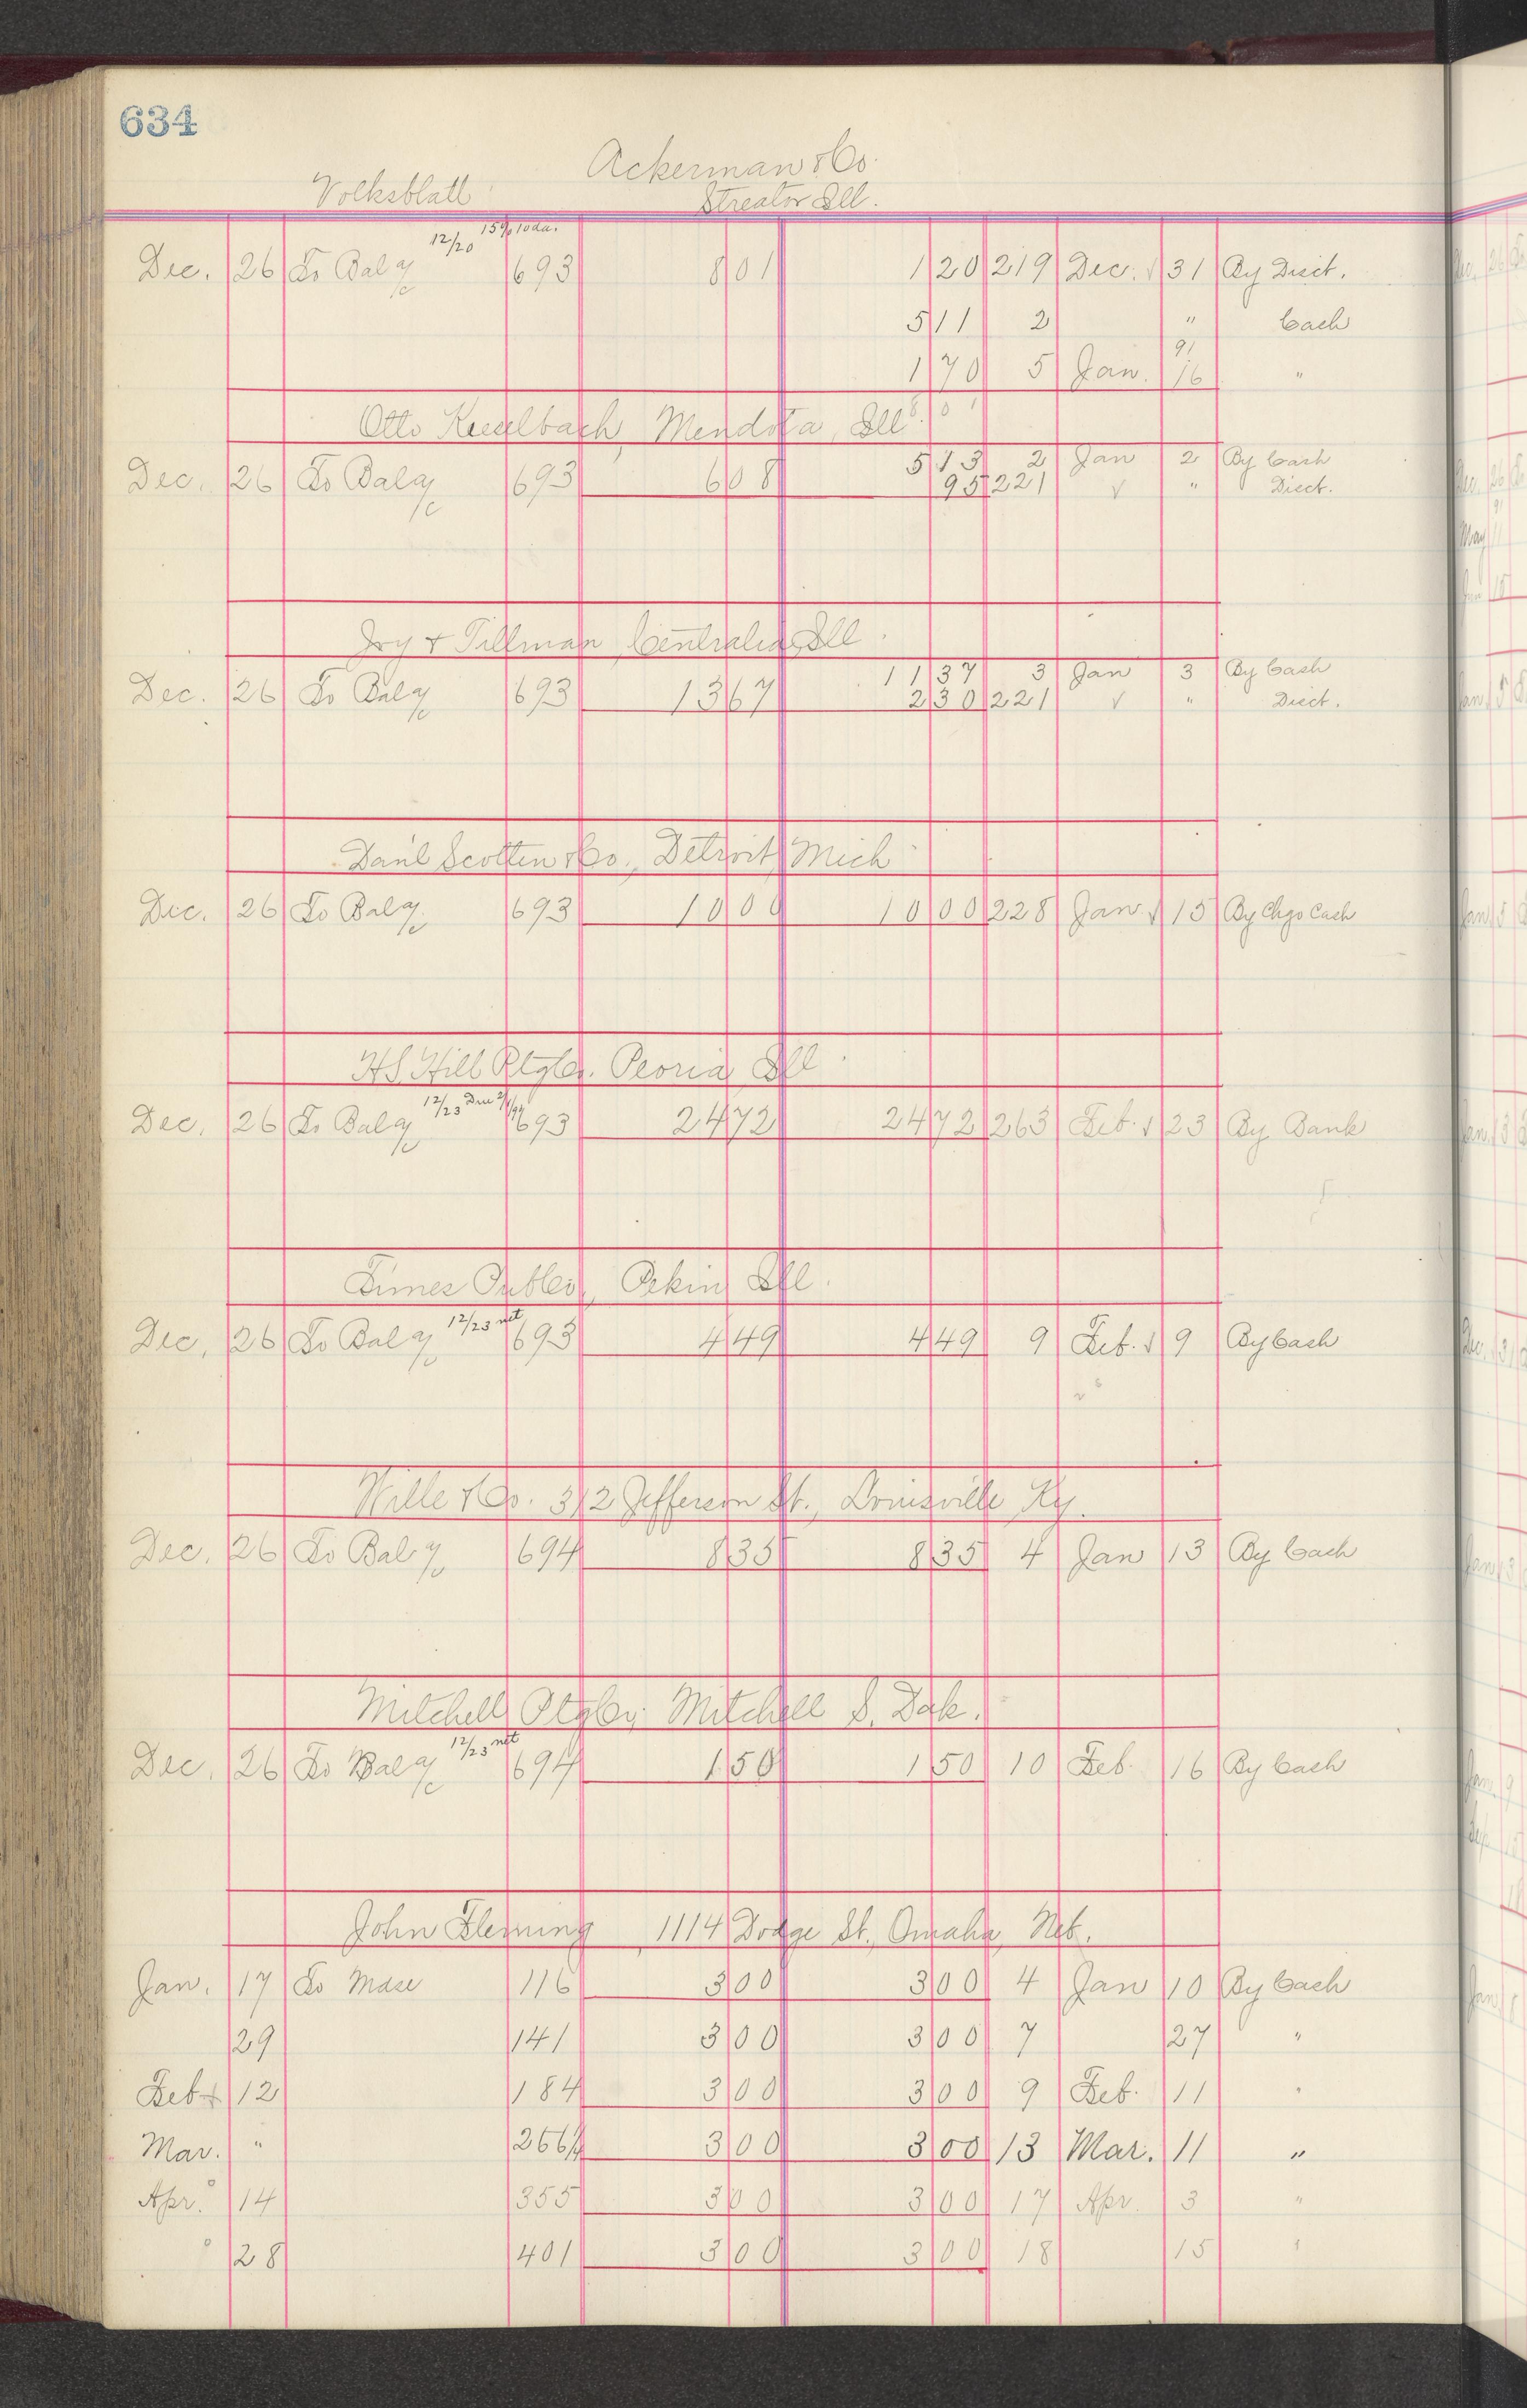 634
Ackerman & Co.
Volksblatt Streator Ill.
12/20 15% 10 da.
Dec. 26 To Bal a/c 693 8 01 1 20 219 Dec. √ 31 By Disct.
5 11 2 " Cash
91
1 70 5 Jan. 16 "
8 0 1
Otto Kieselbach, Mendota, Ill.
5 13 2 Jan 2 By Cash
Dec. 26 To Bal a/c 693 6 08 95 221 √ " Disct.
Joy & Tillman, Centralia, Ill.
11 37 3 Jan 3 By Cash
Dec. 26 To Bal a/c 693 13 67 2 30 221 √ " Disct.
Dan'l Scotten & Co., Detroit, Mich
Dec. 26 To Bal a/c 693 10 00 10 00 228 Jan √ 15 By Chgo Cash
H.S. Hill Ptg Co. Peoria, Ill.
12/23 Due 2/1/91
Dec. 26 To Bal a/c 693 24 72 24 72 263 Feb. √ 23 By Bank
Times Pub Co., Pekin, Ill.
12/23 net
Dec. 26 To Bal a/c 693 4 49 4 49 9 Feb. √ 9 By Cash
Wille & Co. 312 Jefferson St., Louisville Ky.
Dec. 26 To Bal a/c 694 8 35 8 35 4 Jan 13 By Cash
Mitchell Ptg Co. Mitchell S. Dak.
12/23 net
Dec. 26 To Bal a/c 694 1 50 1 50 10 Feb. 16 By Cash
John Fleming 1114 Dodge St., Omaha, Neb.
Jan. 17 To Mdse 116 3 00 3 00 4 Jan 10 By Cash
29 141 3 00 3 00 7 27 "
Feb 12 184 3 00 3 00 9 Feb. 11 "
Mar. " 266½ 3 00 3 00 13 Mar. 11 "
Apr. 14 355 3 00 3 00 17 Apr. 3 "
" 28 401 3 00 3 00 18 15 "